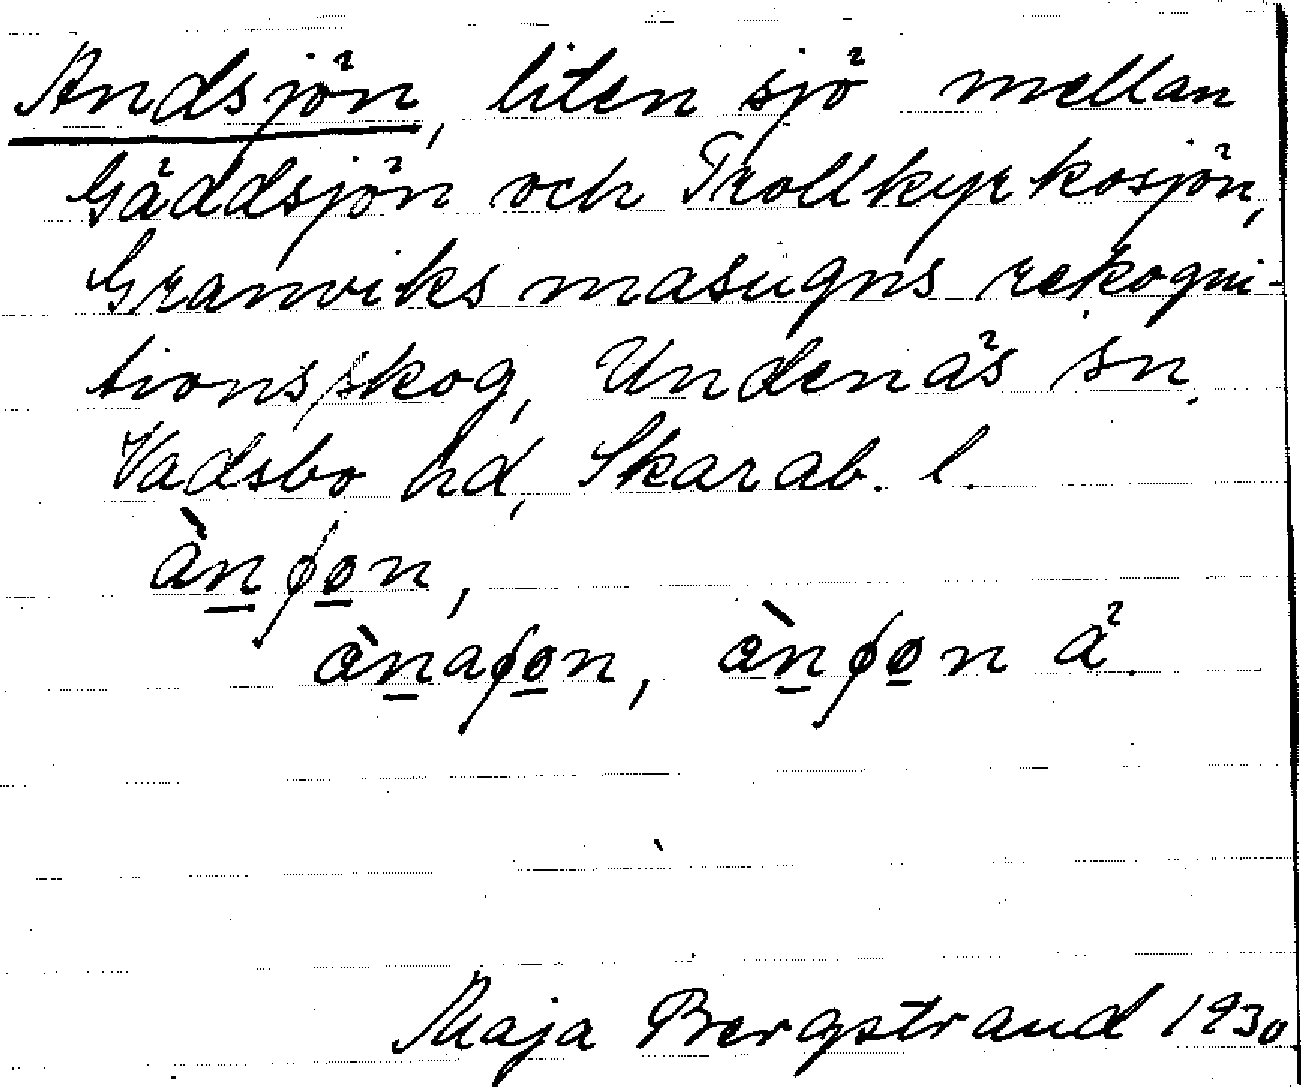 Andsjön, liten sjö mellan
Gäddsjön och Trollkyrkosjön,
Granviks masugns rekogni-
tionsskog, Undenäs sn.
Vadsbo hd, Skarab. l.
àn̲ʃo̲n,
àn̲aʃo̲n, àn̲ʃo̲n ä.
Maja Bergstrand 1930